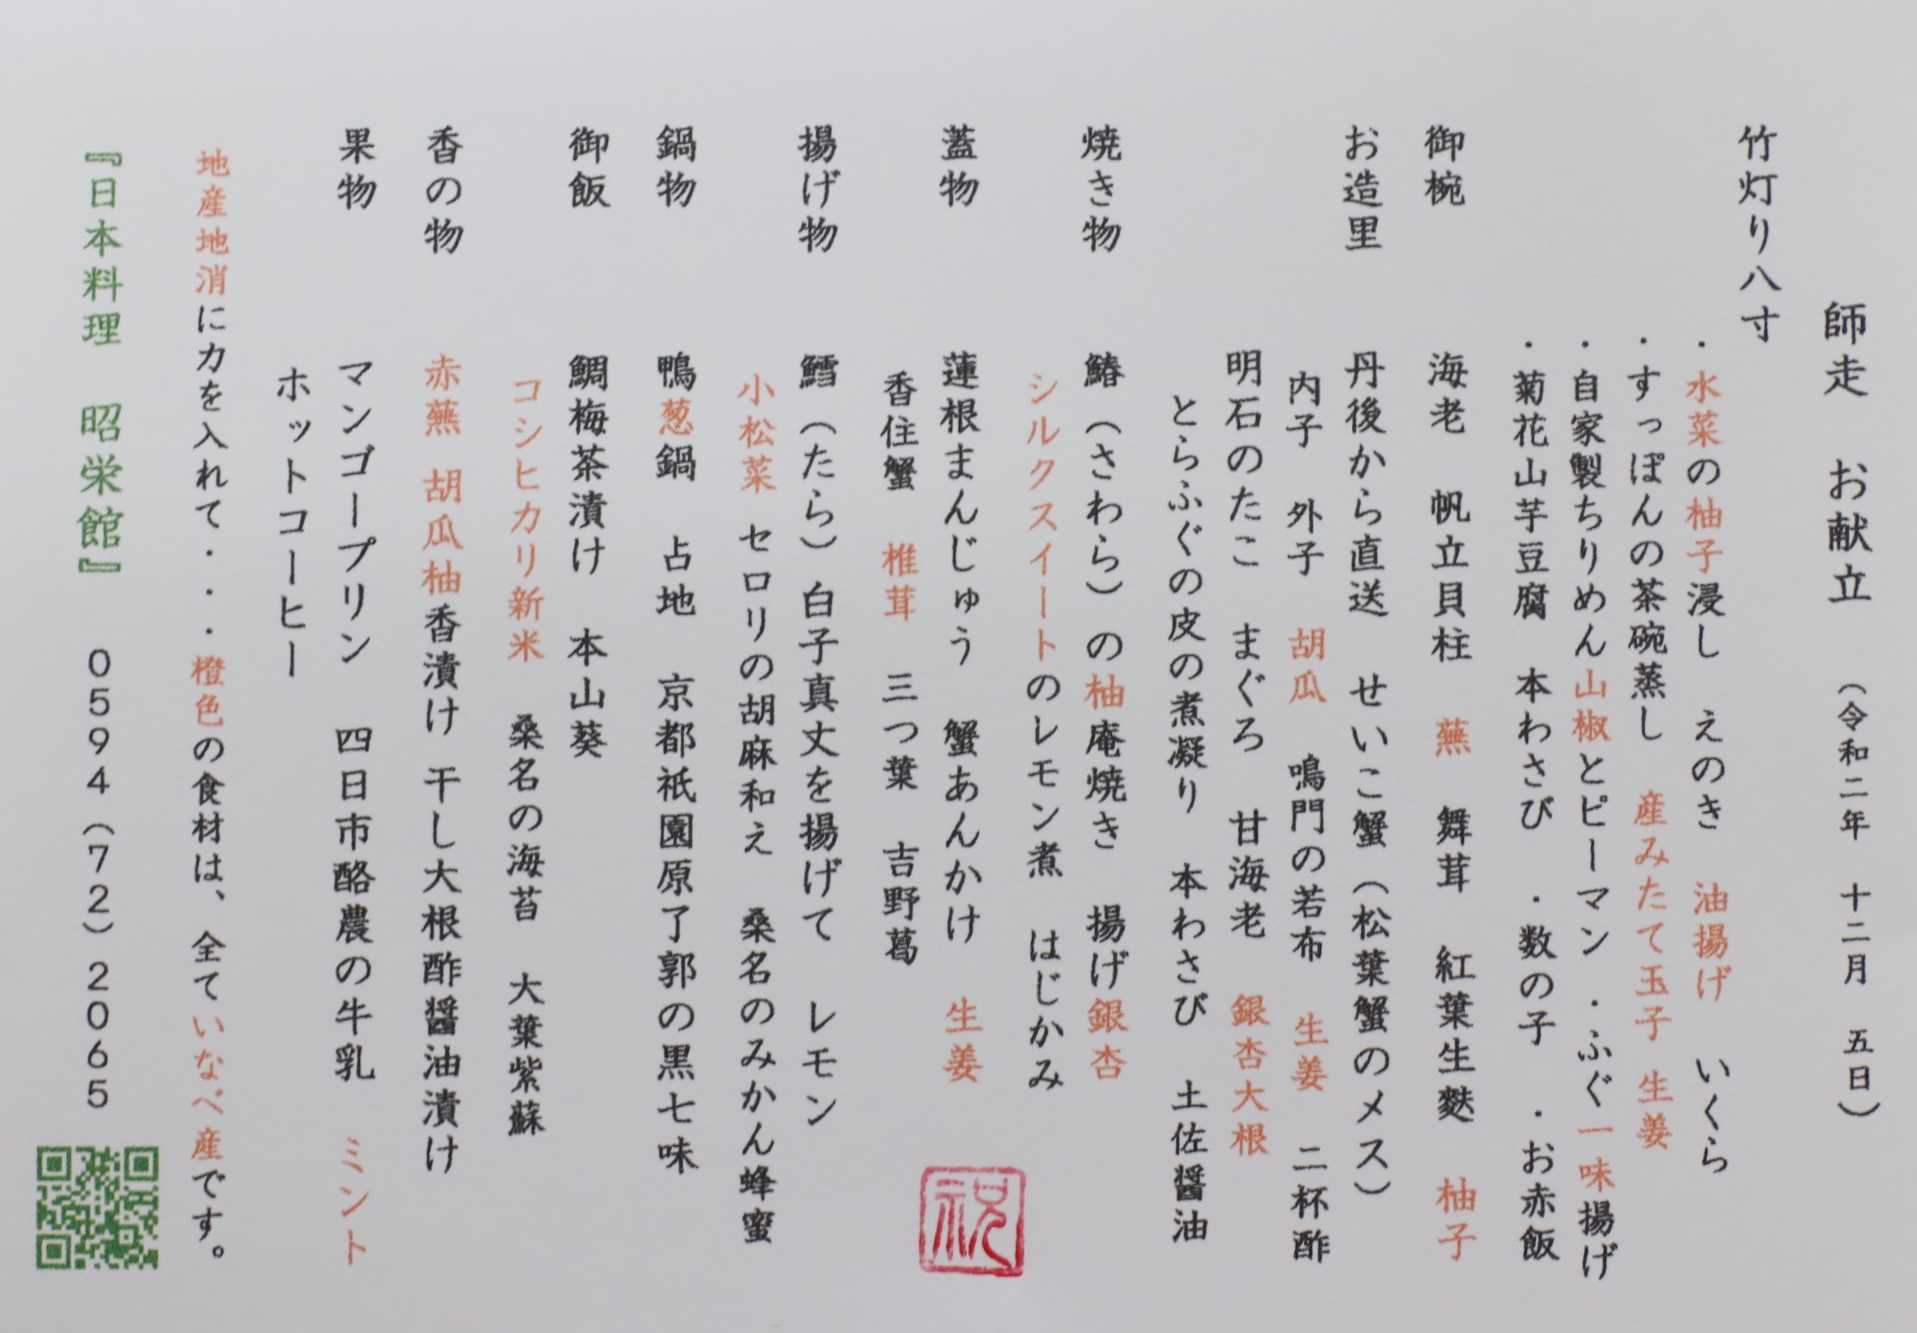 師走　お献立　（令和二年　十二月　五日）
竹灯り八寸
・水菜の柚子浸し　えのき　油揚げ　いくら
・すっぽんの茶碗蒸し　産みたて玉子　生姜
・自家製ちりめん山椒とピーマン　・ふぐ一味揚げ
・菊花山芋豆腐　本わさび　・数の子　・お赤飯
御椀　海老　帆立貝柱　蕪　舞茸　紅葉生麩　柚子
お造里　丹後から直送　せいこ蟹（松葉蟹のメス）
内子　外子　胡瓜　鳴門の若布　生姜　二杯酢
明石のたこ　まぐろ　甘海老　銀杏大根
とらふぐの皮の煮凝り　本わさび　土佐醤油
焼き物　鰆（さわら）の柚庵焼き　揚げ銀杏
シルクスイートのレモン煮　はじかみ
蓋物　蓮根まんじゅう　蟹あんかけ　生姜
香住蟹　椎茸　三つ葉　吉野葛
揚げ物　鱈（たら）白子真丈を揚げて　レモン
小松菜　セロリの胡麻和え　桑名のみかん蜂蜜
鍋物　鴨葱鍋　占地　京都祇園原了郭の黒七味
御飯　鯛梅茶漬け　本山葵
コシヒカリ新米　桑名の海苔　大葉紫蘇
香の物　赤蕪　胡瓜柚香漬け　干し大根酢醤油漬け
果物　マンゴープリン　四日市酪農の牛乳　ミント
ホットコーヒー
地産地消に力を入れて・・・橙色の食材は、全ていなべ産です。
『日本料理　昭栄館』　０５９４（７２）２０６５
祝